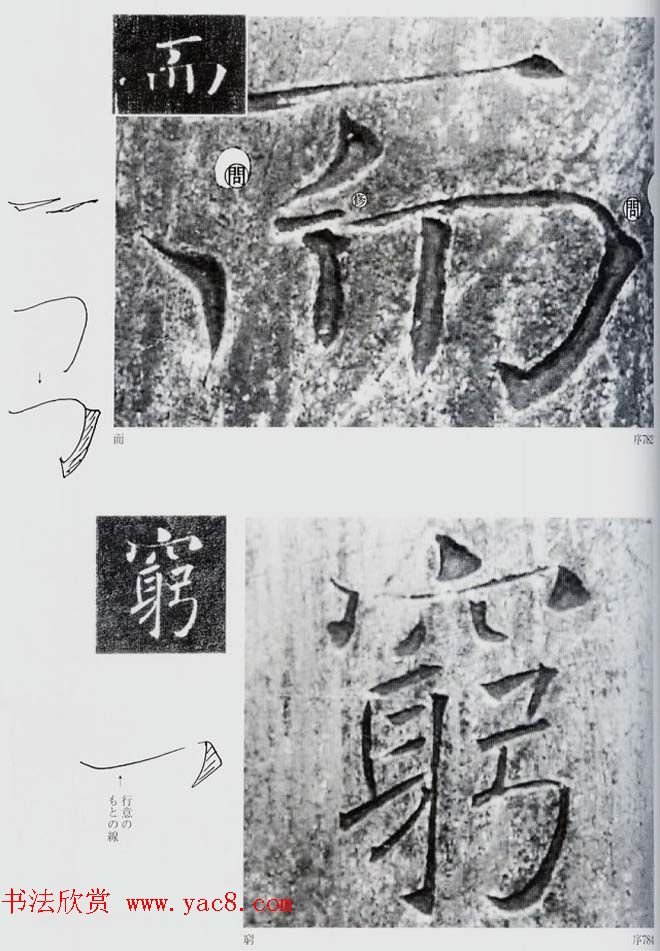 而
問
修
問
而
序782
窮
行意の
もとの線
窮
序784
书法欣赏 www.yac8.com